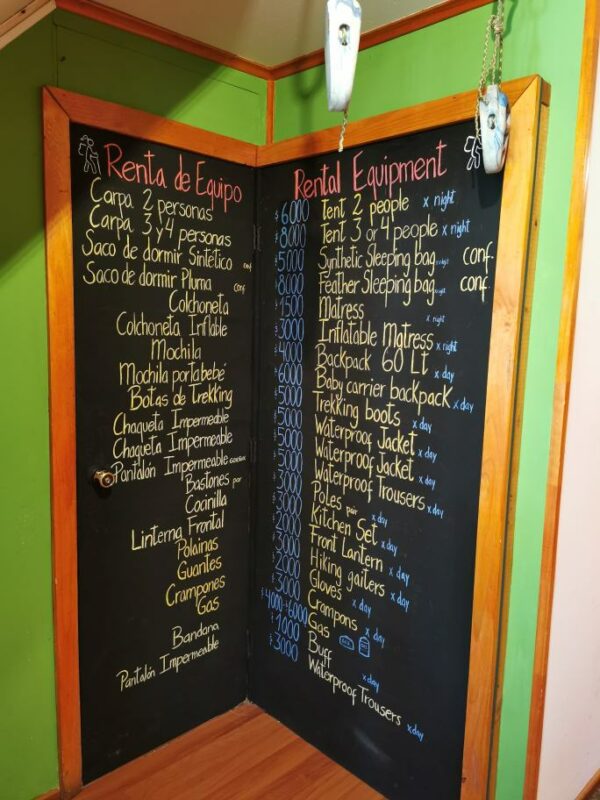 Renta de Equipo
Carpa 2 personas
Carpa 3 y 4 personas
Saco de dormir Sintético conf
Saco de dormir Pluma conf
Colchoneta
Colchoneta Inflable
Mochila
Mochila portabebé
Botas de Trekking
Chaqueta Impermeable
Chaqueta Impermeable
Pantalón Impermeable
Bastones par
Cocinilla
Linterna Frontal
Polainas
Guantes
Crampones
Gas
Bandana
Pantalón Impermeable
Rental Equipment
$6000 Tent 2 people x night
$8000 Tent 3 or 4 people x night
$5000 Synthetic Sleeping bag x night conf.
$8000 Feather Sleeping bag x night conf.
$1500 Matress x night
$3000 Inflatable Matress x night
$4000 Backpack 60 Lt x day
$6000 Baby carrier backpack x day
$5000 Trekking boots x day
$5000 Waterproof Jacket x day
$5000 Waterproof Jacket x day
$5000 Waterproof Trousers x day
$3000 Poles pair x day
$3000 Kitchen Set x day
$2000 Front Lantern x day
$3000 Hiking gaiters x day
$2000 Gloves x day
$3000 Crampons x day
$4000-$6000 Gas
$1000 Buff x day
$3000 Waterproof Trousers x day